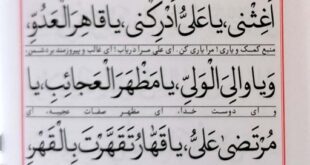 أَغِثْنِی، یَا عَلِیُّ أَدْرِکْنِی، یَا قَاهِرَ الْعَدُوِّ،
منبع کمک و یاری! مرا یاری کن. ای علی مرا دریاب! ای غالب و پیروزمند بر دشمن،
وَیَا وَالِیَ الْوَلِیِّ، یَا مَظْهَرَ الْعَجَائِبِ، یَا
و ای دوست خدا، ای مظهر صفات عجیبه، ای
مُرْتَضیٰ عَلِیُّ، یَا قَهَّارُ تَقَهَّرْتَ بِالْقَهْرِ،